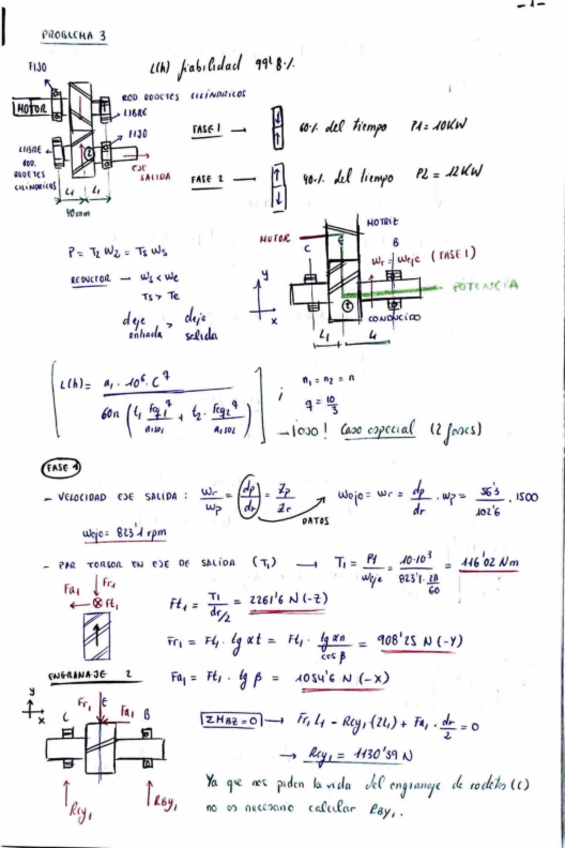 -1-
PROBLEMA 3
L(h) fiabilidad 99'8%
FIJO
MOTOR
ROD RODETES CILÍNDRICOS
LIBRE
FIJO
LIBRE
ROD.
RODETES
CILÍNDRICOS
2
EJE
SALIDA
L1 L1
40mm
FASE 1 → 60% del tiempo P1 = 10KW
FASE 2 → 40% del tiempo P2 = 12KW
P = T2 W2 = Ts Ws
REDUCTOR → Ws < We
Ts > Te
deje entrada > deje salida
MOTRIZ
MOTOR
C E B
Wr = Weje (FASE 1)
POTENCIA
2
CONDUCIDO
y
x
L1 L1
L(h) = a1 · 10^6 · C^q / 60n (t1 Feq1^q / aiso1 + t2 · Feq2^q / aiso2) ;
n1 = n2 = n
q = 10/3
→ ¡ojo! Caso especial (2 fases)
FASE 1
- VELOCIDAD EJE SALIDA : Wr/Wp = dp/dr = Zp/Zr
DATOS
Weje = Wr = dp/dr · Wp = 56'3/102'6 · 1500
Weje = 823'1 rpm
- PAR TORSOR EN EJE DE SALIDA (T1) → T1 = P1/Weje = 10·10^3 / 823'1 · 2π/60 = 116'02 Nm
Fa1 Fr1
Ft1
Ft1 = T1 / dr/2 = 2261'6 N (-Z)
Fr1 = Ft1 · tg αt = Ft1 · tg αn / cos β = 908'25 N (-Y)
ENGRANAJE 2
Fa1 = Ft1 · tg β = 1054'6 N (-X)
y
x
C Fr1 E Fa1 B
Rcy1 RBy1
ΣMBZ=0 → Fr1 L1 - Rcy1 (2L1) + Fa1 · dr/2 = 0
→ Rcy1 = 1130'39 N
Ya que nos piden la vida del engranaje de rodetes (C)
no es necesario calcular RBy1.